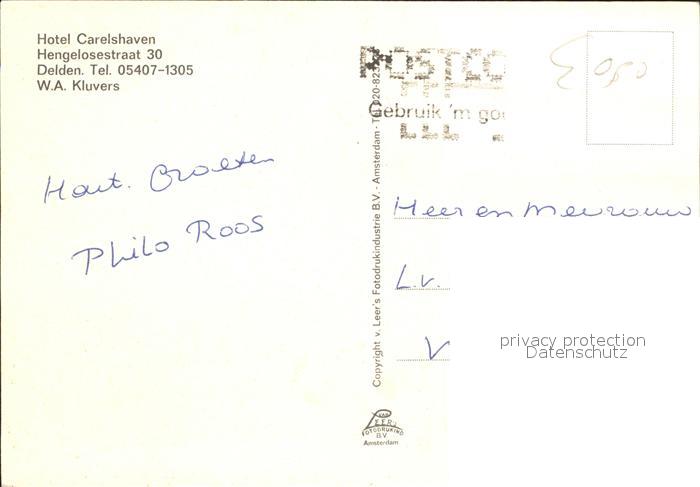 Hotel Carelshaven
Hengelosestraat 30
Delden. Tel. 05407-1305
W.A. Kluvers
Hart. Groeten
Philo Roos
Gebruik 'm go
Copyright v. Leer's Fotodrukindustrie B.V. - Amsterdam - Tel. 020-823
VAN
LEER'S
FOTODRUKIND
B.V.
Amsterdam
Heer en Mevrouw
L.v.
V
privacy protection
Datenschutz